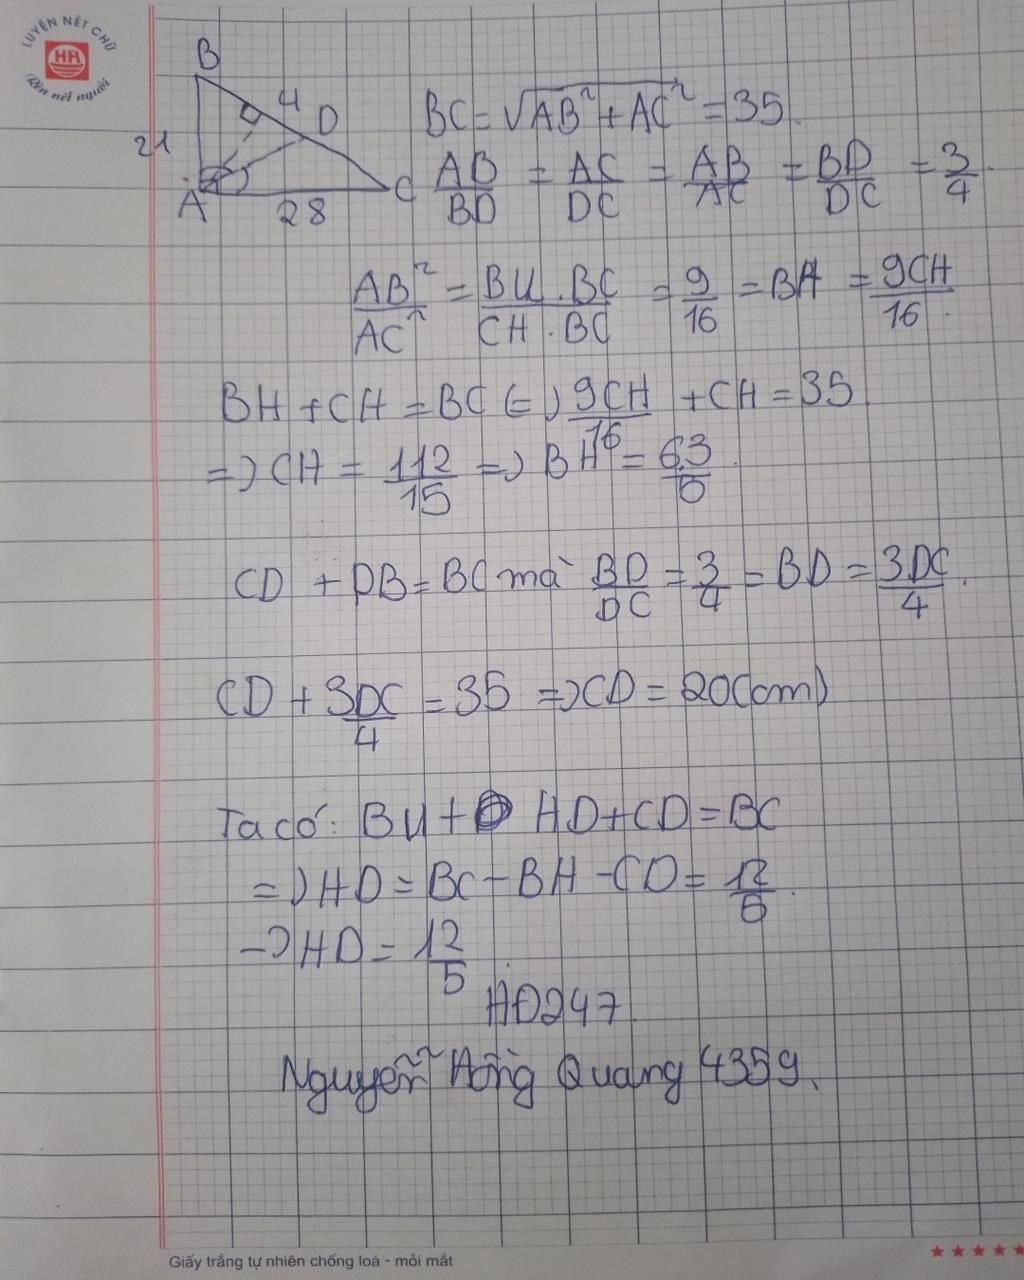 LUYỆN NÉT CHỮ
HA
Rèn nết người
B
H
D
21
A
28
C
BC = √AB² + AC² = 35.
AB/BD = AC/DC = AB/AC = BD/DC = 3/4.
AB²/AC² = BH.BC/CH.BC = 9/16 = BH = 9CH/16.
BH + CH = BC (=) 9CH/16 + CH = 35
=) CH = 112/15 =) BH = 63/5.
CD + DB = BC mà BD/DC = 3/4 = BD = 3DC/4.
CD + 3DC/4 = 35 =) CD = 20(cm)
Ta có: BH + HD + CD = BC
=) HD = BC - BH - CD = 12/5.
-) HD = 12/5.
HĐ247
Nguyễn Hồng Quang 4359.
Giấy trắng tự nhiên chống loá - mỏi mắt